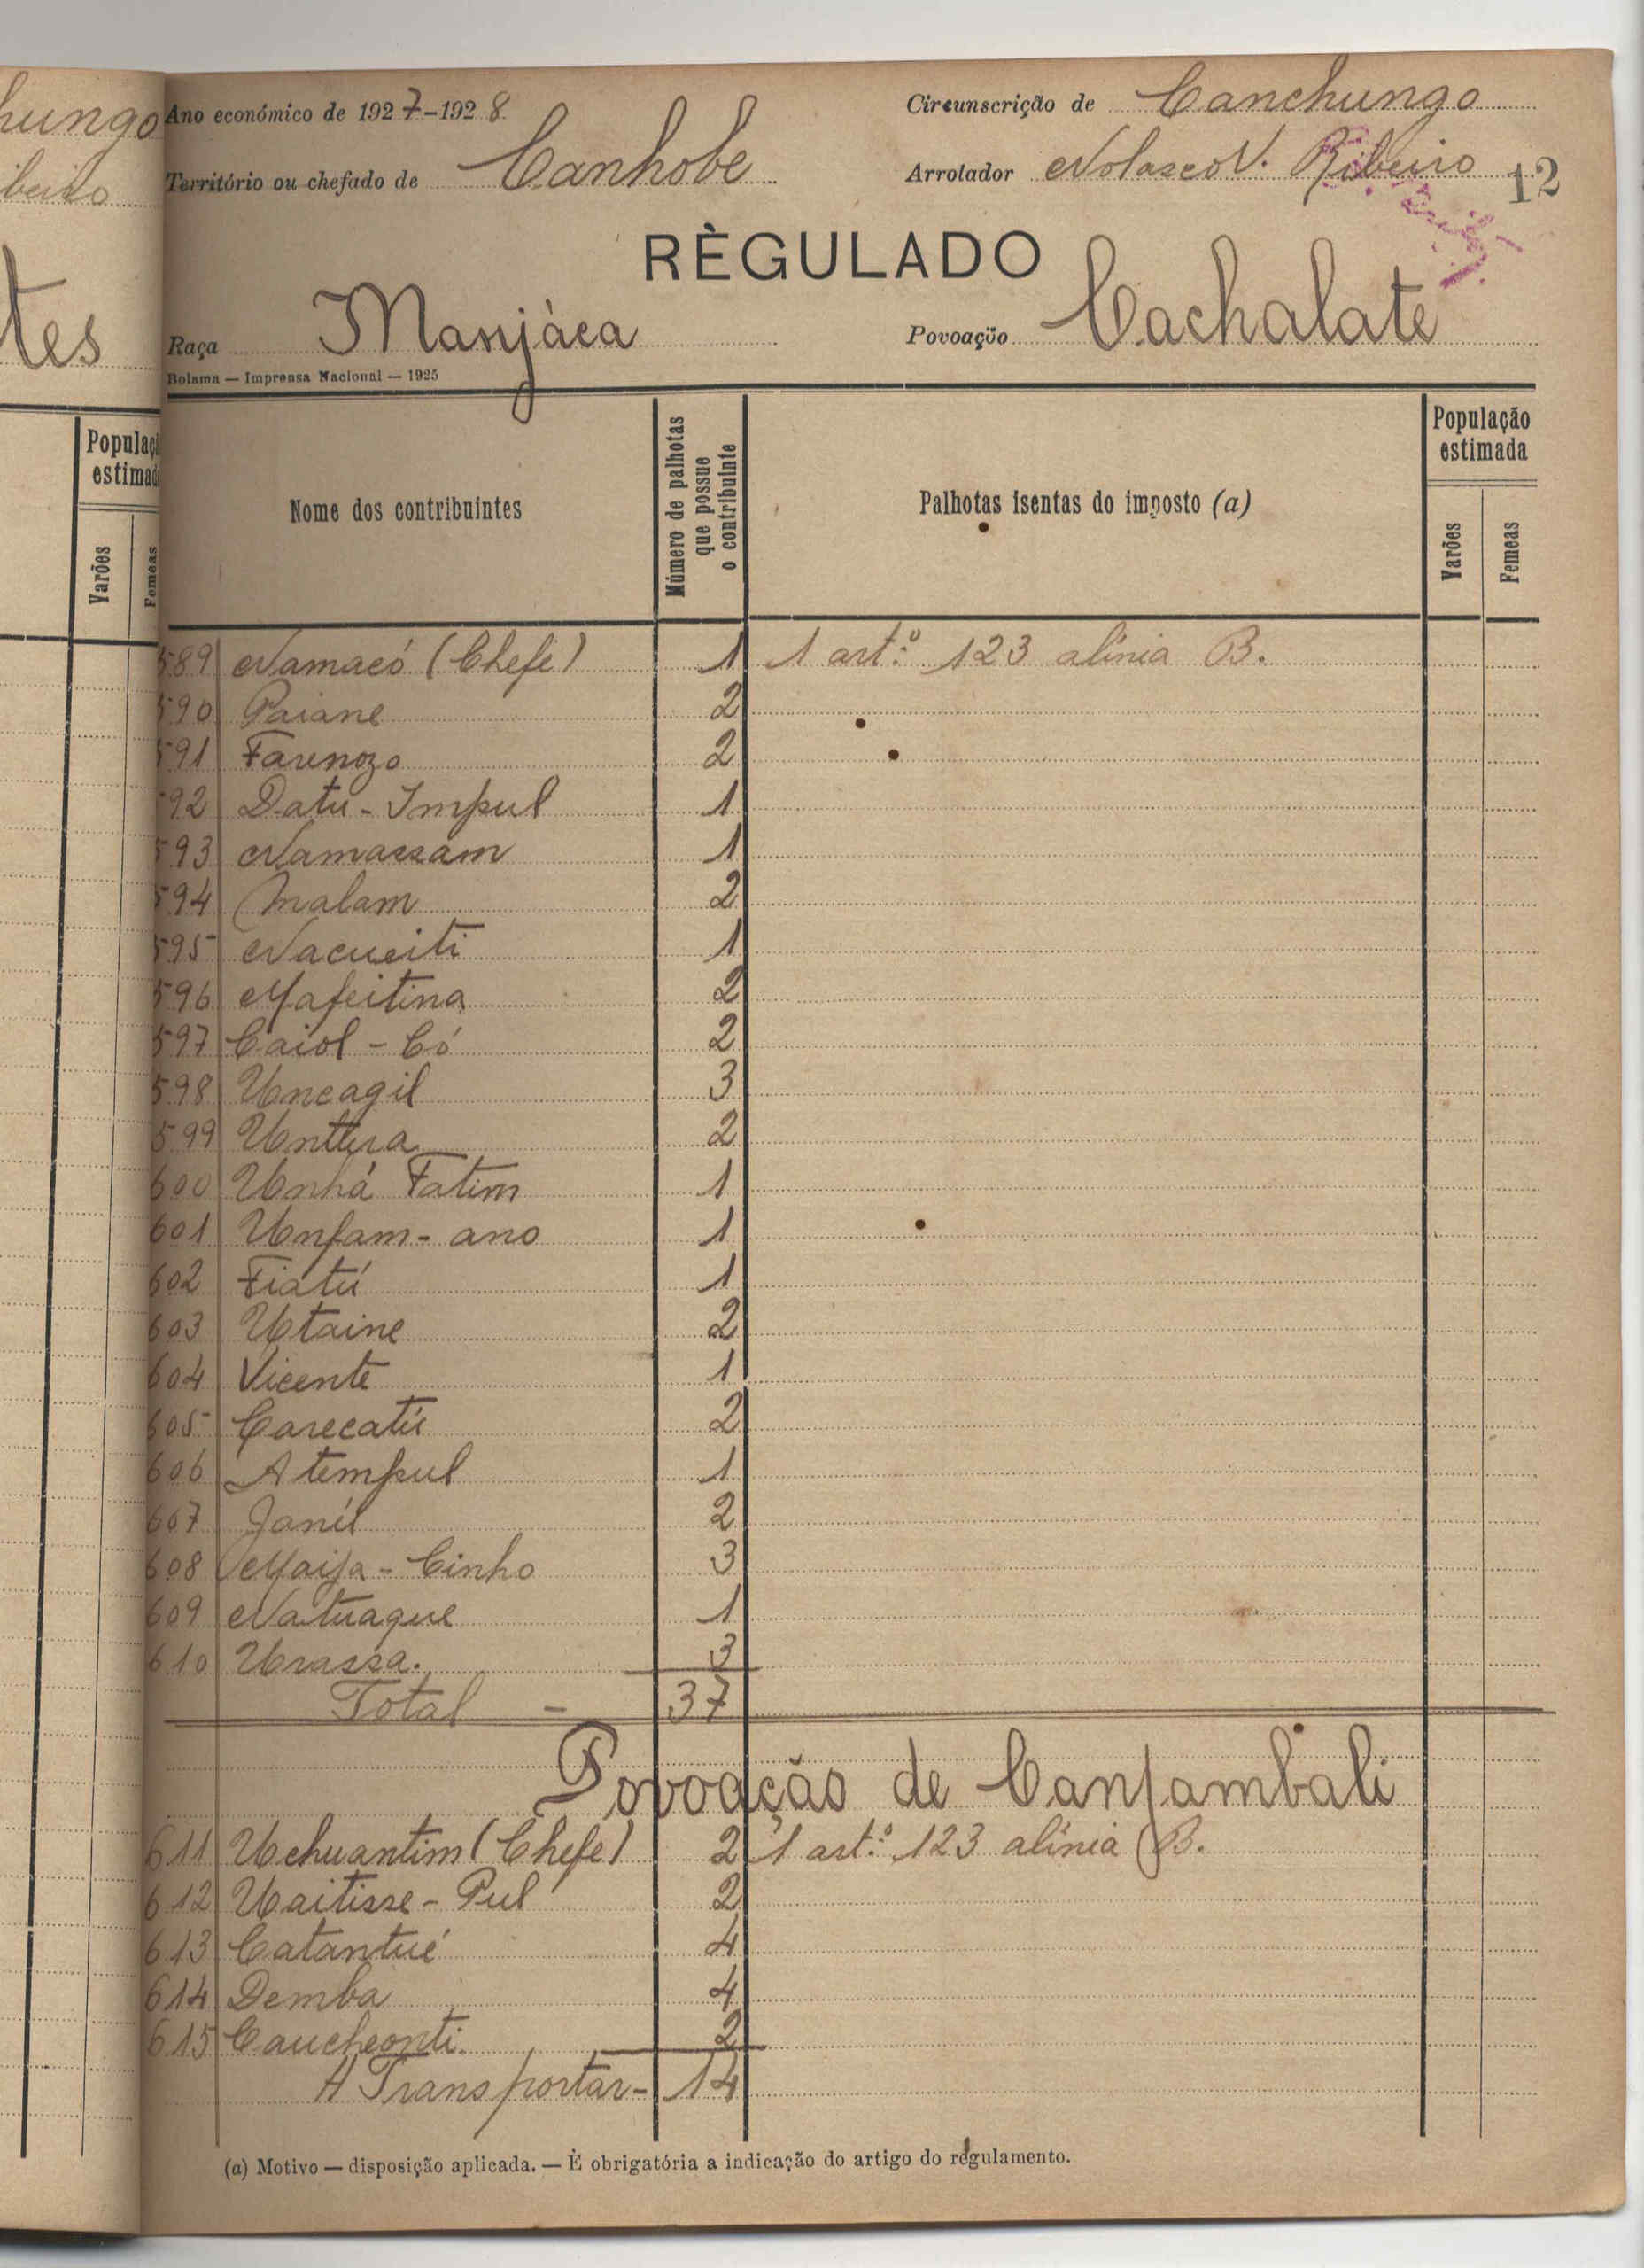 hungo
beiro
tes
Populaç
estimad
Varões
Femeas
Ano económico de 1927-1928
Circunscrição de Canchungo
Território ou chefado de Canhobe
Arrolador Nolasco V. Ribeiro
12
RÈGULADO
Raça Manjàca
Povoação Cachalate
Bolama — Imprensa Nacional — 1925
Nome dos contribuintes
Número de palhotas que possue o contribuinte
Palhotas isentas do imposto (a)
População estimada
Varões
Femeas
589 Namacó (Chefe) 1 1 art.º 123 alínia B.
590 Paiane 2
591 Farenozo 2
592 Datu-Impul 1
593 Namassam 1
594 Malam 2
595 Nacueiti 1
596 Mafeitina 2
597 Caiol-Có 2
598 Uncagil 3
599 Unttura 2
600 Unhá Fatim 1
601 Unfam-ano 1
602 Fiatú 1
603 Utaine 2
604 Vicente 1
605 Carecatú 2
606 Atempul 1
607 Janú 2
608 Maija-Cinho 3
609 Natuaque 1
610 Urassa. 3
Total - 37
Povoação de Canjambali
611 Uchuantim (Chefe) 2 1 art.º 123 alínia B.
612 Uaitisse-Pul 2
613 Catantué 4
614 Demba 4
615 Caucheonti. 2
A Transportar- 14
(a) Motivo — disposição aplicada. — È obrigatória a indicação do artigo do regulamento.